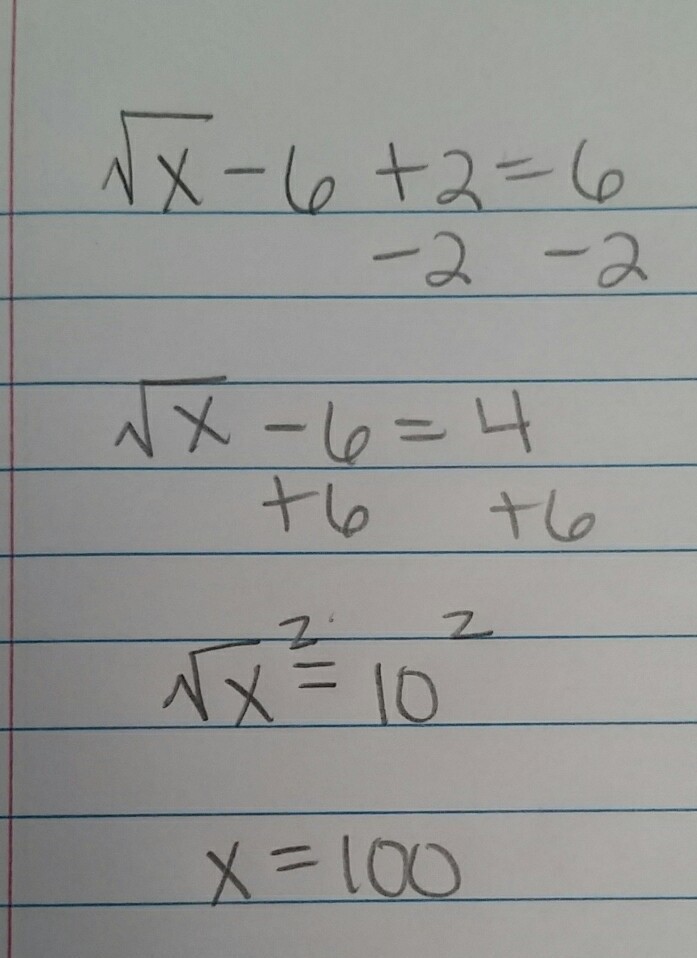 √x - 6 + 2 = 6
- 2 - 2
√x - 6 = 4
+ 6 + 6
√x² = 10²
x = 100